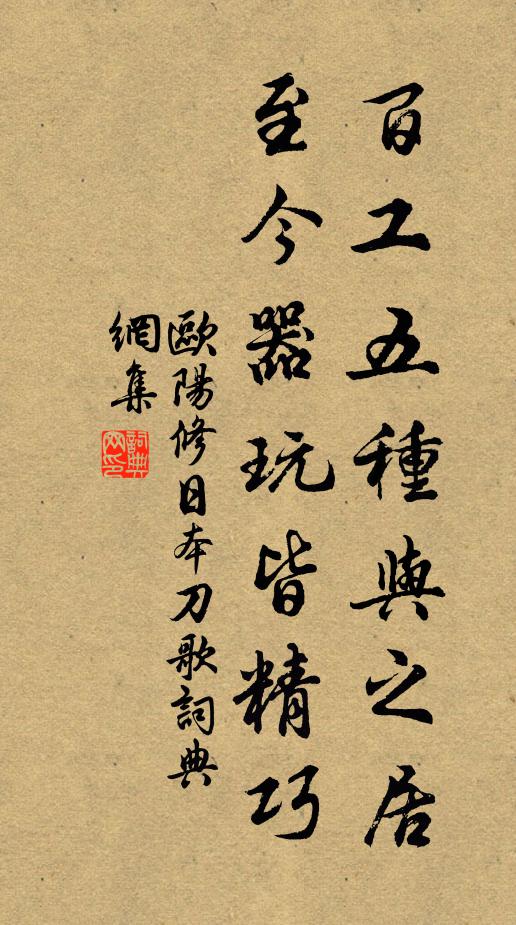 百工五種與之居
至今器玩皆精巧
歐陽修日本刀歌詞典
網集
詞典
網印